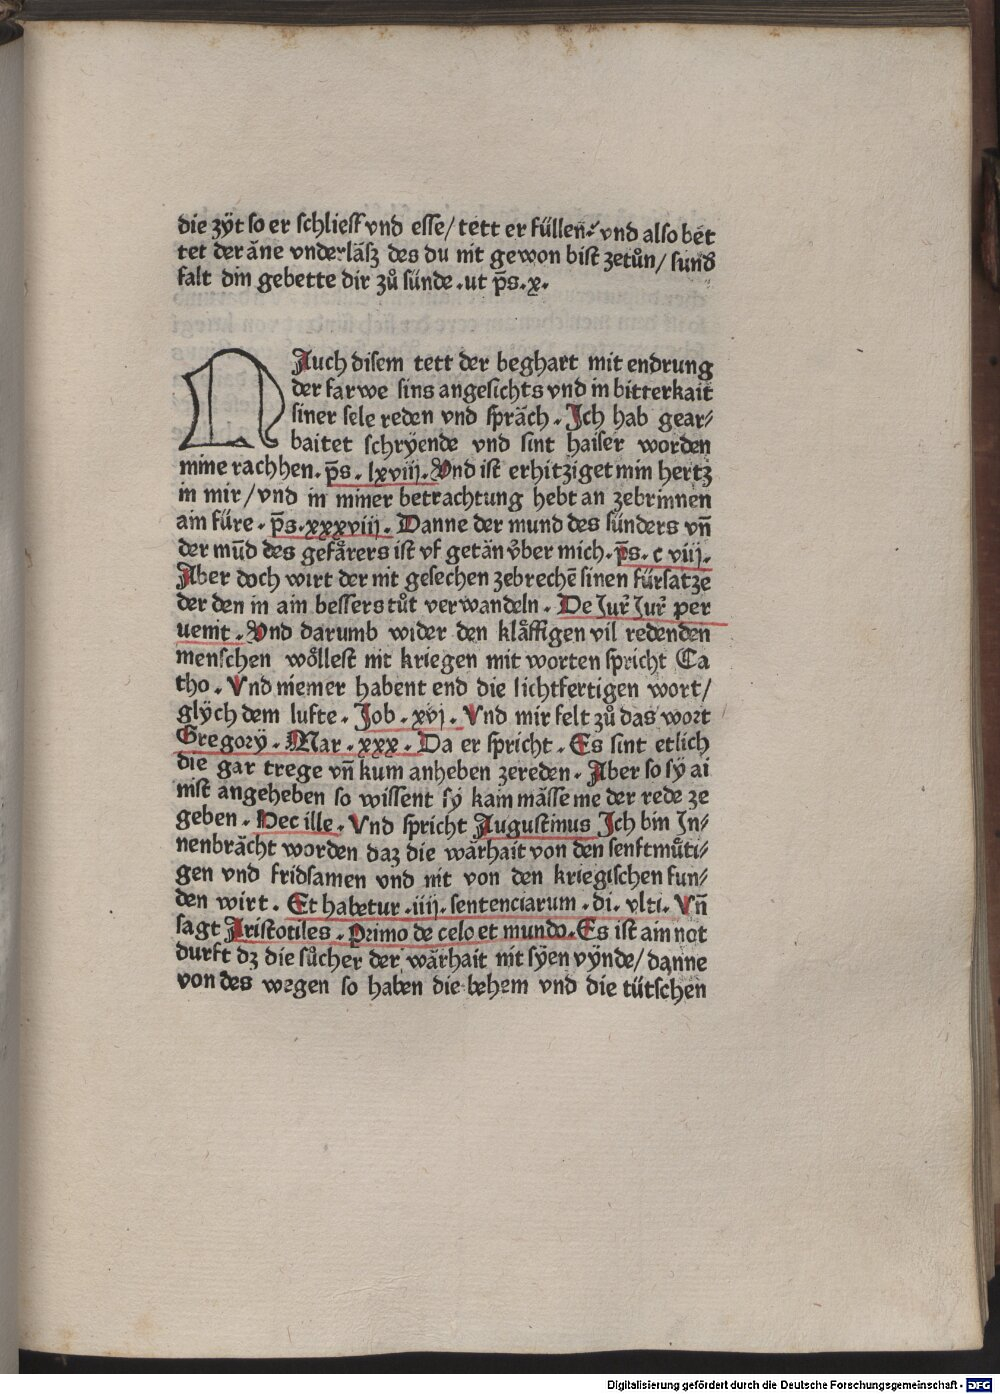 die zÿt so er schlieff vnd esse/ tett er füllen: vnd also bet
tet der āne vnderlāsz des du nit gewon bist zetůn/ sund
falt din gebette dir zů sünde .ut p̄s.x.
NAuch disem tett der beghart mit endrung
der farwe sins angesichts vnd in bitterkait
siner sele reden vnd sprāch. Ich hab gear⸗
baitet schrÿende vnd sint haiser worden
mine rachhen. p̄s. lxviij. Vnd ist erhitziget min hertz
in mir/ vnd in miner betrachtung hebt an zebrinnen
ain füre. p̄s.xxxviij. Danne der mund des sünders vn̄
der mūd des gefårers ist vf getān v̊ber mich. p̄s. c viij.
Aber doch wirt der nit gesechen zebrechē sinen fürsatze
der den in ain bessers tůt verwandeln. De Jur̄ Jur̄ per
uenit. Vnd darumb wider den klåffigen vil redenden
menschen wöllest nit kriegen mit worten spricht Ca
tho. Vnd niemer habent end die lichtfertigen wort/
glÿch dem lufte. Job. xvj. Vnd mir felt zů das wort
Gregorÿ. Mar. xxx. Da er spricht. Es sint etlich
die gar trege vn̄ kum anheben zereden. Aber so sÿ ai
nist angeheben so wissent sÿ kain māsse me der rede ze
geben. Hec ille. Vnd spricht Augustinus Ich bin In⸗
nenbrācht worden daz die wārhait von den senftmůti⸗
gen vnd fridsamen vnd nit von den kriegischen fun⸗
den wirt. Et habetur .iiij. sentenciarum .di. vlti. Vn̄
sagt Aristotiles. Primo de celo et mundo. Es ist ain not
durft dz die sůcher der wārhait nit sÿen vÿnde/ danne
von des wegen so haben die behem vnd die tütschen
Digitalisierung gefördert durch die Deutsche Forschungsgemeinschaft - DFG